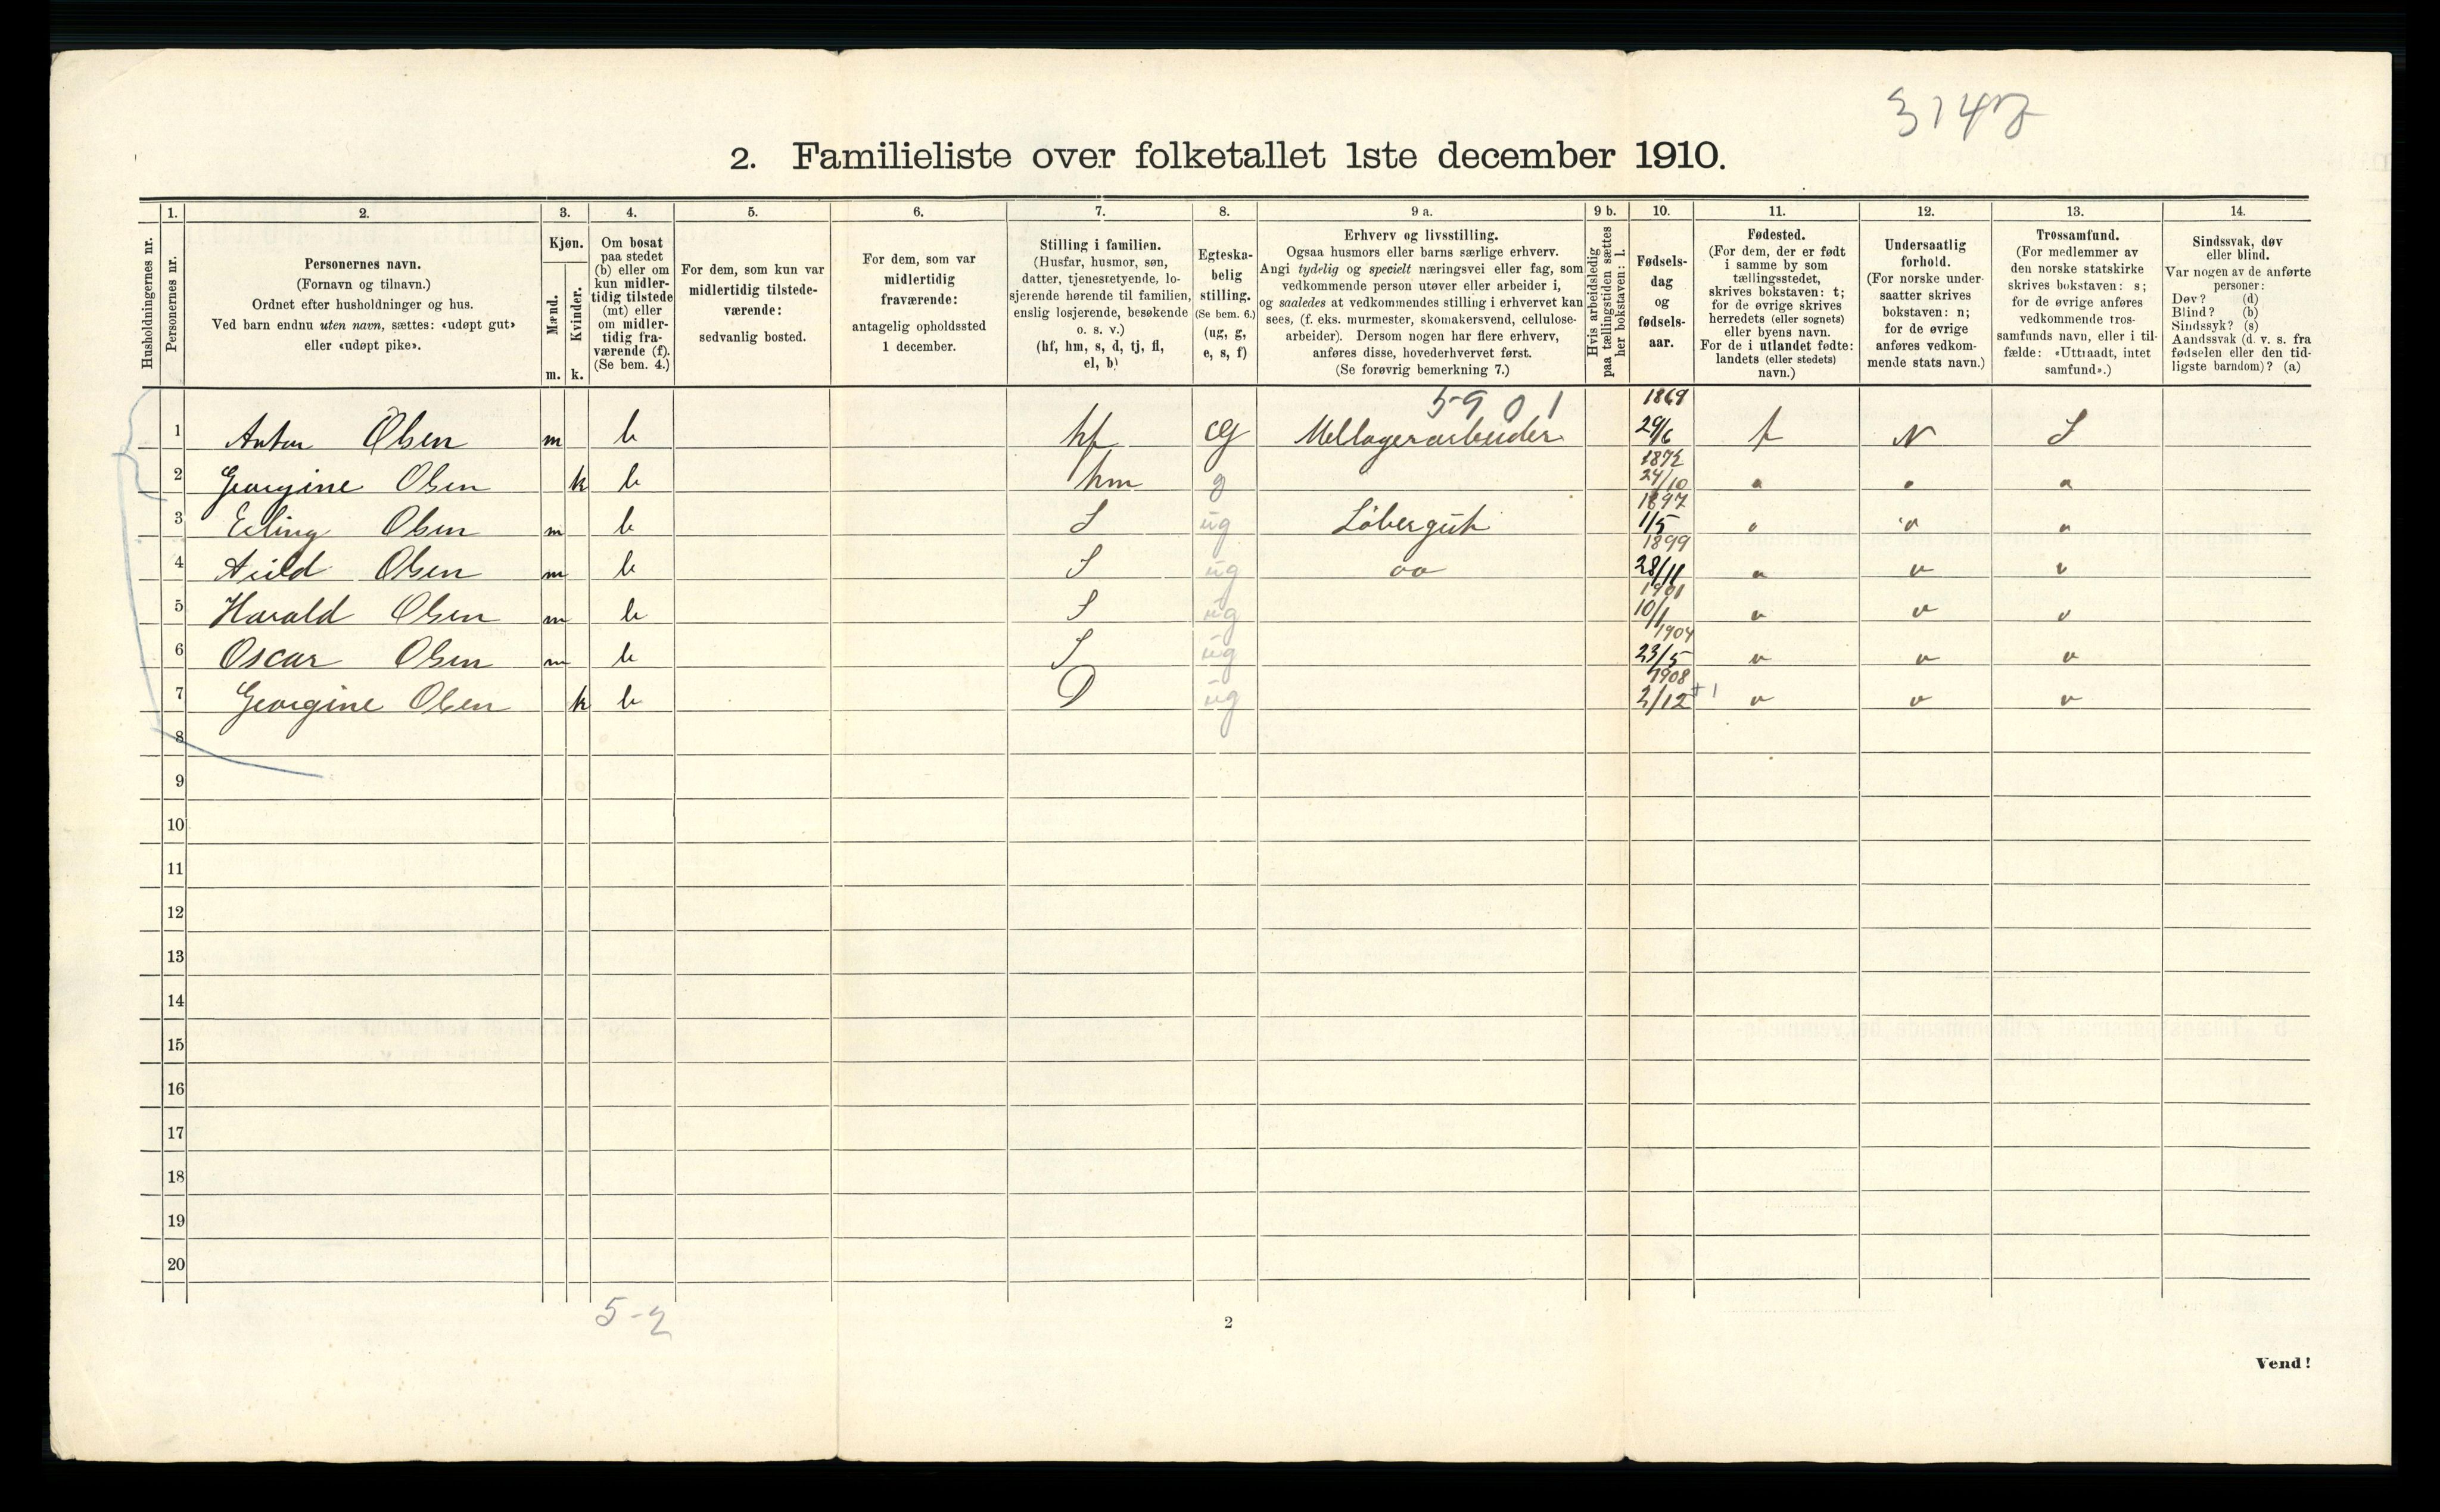 3142
2. Familieliste over folketallet 1ste december 1910.
Husholdningernes nr.
1. Personernes nr.
2. Personernes navn. (Fornavn og tilnavn.) Ordnet efter husholdninger og hus. Ved barn endnu uten navn, sættes: «udøpt gut» eller «udøpt pike».
3. Kjøn. Mænd. m. Kvinder. k.
4. Om bosat paa stedet (b) eller om kun midlertidig tilstede (mt) eller om midlertidig fraværende (f). (Se bem. 4.)
5. For dem, som kun var midlertidig tilstedeværende: sedvanlig bosted.
6. For dem, som var midlertidig fraværende: antagelig opholdssted 1 december.
7. Stilling i familien. (Husfar, husmor, søn, datter, tjenestetyende, losjerende hørende til familien, enslig losjerende, besøkende o. s. v.) (hf, hm, s, d, tj, fl, el, b)
8. Egteskabelig stilling. (Se bem. 6.) (ug, g, e, s, f)
9 a. Erhverv og livsstilling. Ogsaa husmors eller barns særlige erhverv. Angi tydelig og specielt næringsvei eller fag, som vedkommende person utøver eller arbeider i, og saaledes at vedkommendes stilling i erhvervet kan sees, (f. eks. murmester, skomakersvend, cellulosearbeider). Dersom nogen har flere erhverv, anføres disse, hovederhvervet først. (Se forøvrig bemerkning 7.)
9 b. Hvis arbeidsledig paa tællingstiden sættes her bokstaven: l.
10. Fødselsdag og fødselsaar.
11. Fødested. (For dem, der er født i samme by som tællingsstedet, skrives bokstaven: t; for de øvrige skrives herredets (eller sognets) eller byens navn. For de i utlandet fødte: landets (eller stedets) navn.)
12. Undersaatlig forhold. (For norske undersaatter skrives bokstaven: n; for de øvrige anføres vedkommende stats navn.)
13. Trossamfund. (For medlemmer av den norske statskirke skrives bokstaven: s; for de øvrige anføres vedkommende trossamfunds navn, eller i tilfælde: «Uttraadt, intet samfund».)
14. Sindssvak, døv eller blind. Var nogen av de anførte personer: Døv? (d) Blind? (b) Sindssyk? (s) Aandssvak (d. v. s. fra fødselen eller den tidligste barndom)? (a)
5901
1 Anton Olsen m b hf g Mellagerarbeider 1869 29/6 t N S
2 Georgine Olsen k b hm g 1872 24/10 " " "
3 Erling Olsen m b S ug Löbergut 1897 1/5 " " "
4 Arild Olsen m b S ug oo 1899 28/11 " " "
5 Harald Olsen m b S ug 1901 10/1 " " "
6 Oscar Olsen m b S ug 1904 23/5 " " "
7 Georgine Olsen k b D ug 1908 2/12 +1 " " "
8
9
10
11
12
13
14
15
16
17
18
19
20
5-2
2
Vend!